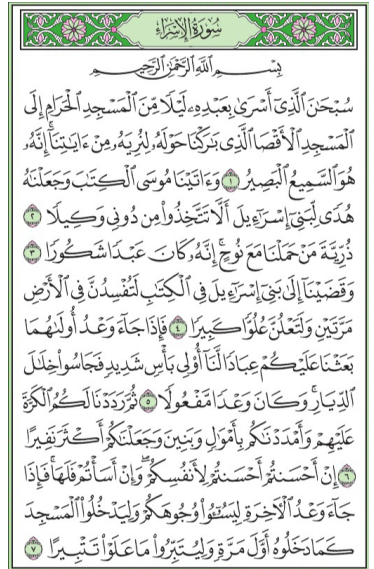 سُورَةُ الإِسۡرَاءِ
بِسۡمِ ٱللَّهِ ٱلرَّحۡمَٰنِ ٱلرَّحِيمِ
سُبۡحَٰنَ ٱلَّذِيٓ أَسۡرَىٰ بِعَبۡدِهِۦ لَيۡلٗا مِّنَ ٱلۡمَسۡجِدِ ٱلۡحَرَامِ إِلَى
ٱلۡمَسۡجِدِ ٱلۡأَقۡصَا ٱلَّذِي بَٰرَكۡنَا حَوۡلَهُۥ لِنُرِيَهُۥ مِنۡ ءَايَٰتِنَآۚ إِنَّهُۥ
هُوَ ٱلسَّمِيعُ ٱلۡبَصِيرُ ١ وَءَاتَيۡنَا مُوسَى ٱلۡكِتَٰبَ وَجَعَلۡنَٰهُ
هُدٗى لِّبَنِيٓ إِسۡرَٰٓءِيلَ أَلَّا تَتَّخِذُواْ مِن دُونِي وَكِيلٗا ٢
ذُرِّيَّةَ مَنۡ حَمَلۡنَا مَعَ نُوحٍۚ إِنَّهُۥ كَانَ عَبۡدٗا شَكُورٗا ٣
وَقَضَيۡنَآ إِلَىٰ بَنِيٓ إِسۡرَٰٓءِيلَ فِي ٱلۡكِتَٰبِ لَتُفۡسِدُنَّ فِي ٱلۡأَرۡضِ
مَرَّتَيۡنِ وَلَتَعۡلُنَّ عُلُوّٗا كَبِيرٗا ٤ فَإِذَا جَآءَ وَعۡدُ أُولَىٰهُمَا
بَعَثۡنَا عَلَيۡكُمۡ عِبَادٗا لَّنَآ أُوْلِي بَأۡسٖ شَدِيدٖ فَجَاسُواْ خِلَٰلَ
ٱلدِّيَارِۚ وَكَانَ وَعۡدٗا مَّفۡعُولٗا ٥ ثُمَّ رَدَدۡنَا لَكُمُ ٱلۡكَرَّةَ
عَلَيۡهِمۡ وَأَمۡدَدۡنَٰكُم بِأَمۡوَٰلٖ وَبَنِينَ وَجَعَلۡنَٰكُمۡ أَكۡثَرَ نَفِيرًا
٦ إِنۡ أَحۡسَنتُمۡ أَحۡسَنتُمۡ لِأَنفُسِكُمۡۖ وَإِنۡ أَسَأۡتُمۡ فَلَهَاۚ فَإِذَا
جَآءَ وَعۡدُ ٱلۡأٓخِرَةِ لِيَسُـُٔواْ وُجُوهَكُمۡ وَلِيَدۡخُلُواْ ٱلۡمَسۡجِدَ
كَمَا دَخَلُوهُ أَوَّلَ مَرَّةٖ وَلِيُتَبِّرُواْ مَا عَلَوۡاْ تَتۡبِيرًا ٧